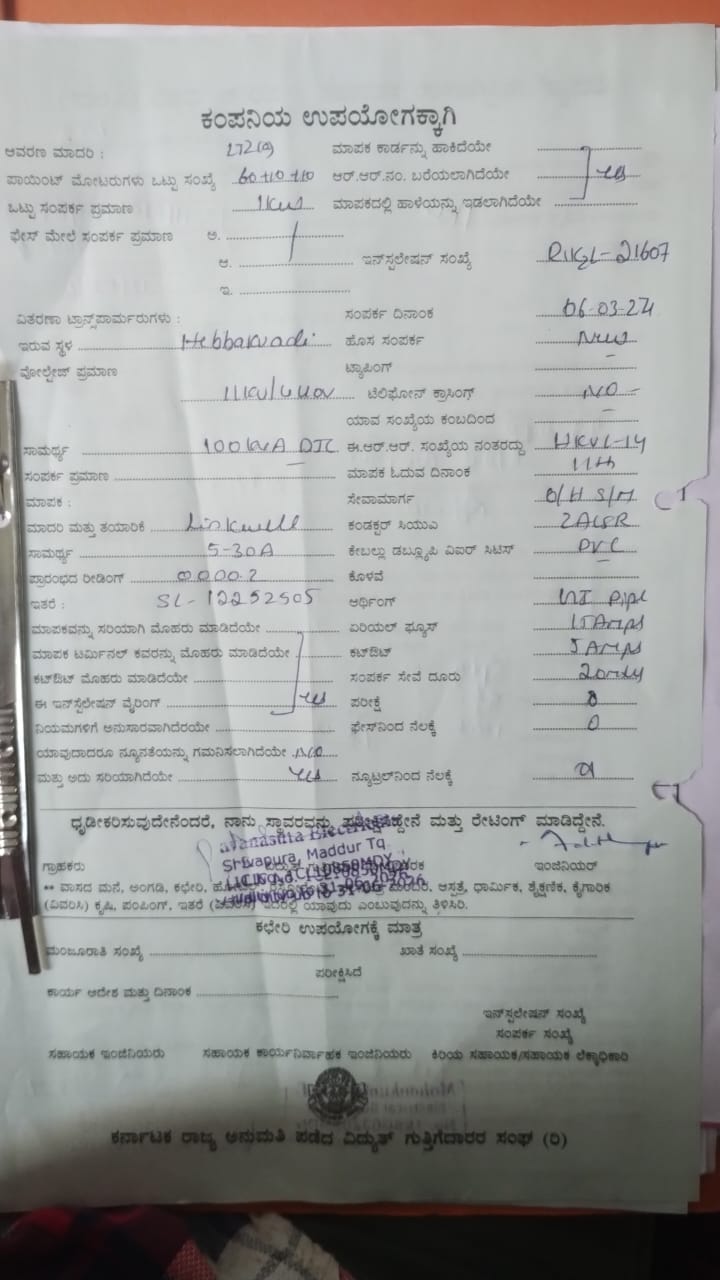 ಕಂಪನಿಯ ಉಪಯೋಗಕ್ಕಾಗಿ
ಆವರಣ ಮಾದರಿ : LT2(a) ಮಾಪಕ ಕಾರ್ಡನ್ನು ಹಾಕಿದೆಯೇ
ಪಾಯಿಂಟ್ ಮೋಟರುಗಳು ಒಟ್ಟು ಸಂಖ್ಯೆ 60+10+10 ಆರ್.ಆರ್.ನಂ. ಬರೆಯಲಾಗಿದೆಯೇ yes
ಒಟ್ಟು ಸಂಪರ್ಕ ಪ್ರಮಾಣ 1kw ಮಾಪಕದಲ್ಲಿ ಹಾಳೆಯನ್ನು ಇಡಲಾಗಿದೆಯೇ
ಫೇಸ್ ಮೇಲೆ ಸಂಪರ್ಕ ಪ್ರಮಾಣ ಅ.
ಆ. ಇನ್‌ಸ್ಟಲೇಷನ್ ಸಂಖ್ಯೆ 21607
ಇ.
ವಿತರಣಾ ಟ್ರಾನ್ಸ್‌ಫಾರ್ಮರುಗಳು : ಸಂಪರ್ಕ ದಿನಾಂಕ 06-03-24
ಇರುವ ಸ್ಥಳ Hebbakvadi ಹೊಸ ಸಂಪರ್ಕ New
ವೋಲ್ಟೇಜ್ ಪ್ರಮಾಣ ಟ್ಯಾಪಿಂಗ್ -
11KV/440V ಟೆಲಿಫೋನ್ ಕ್ರಾಸಿಂಗ್ NO -
ಯಾವ ಸಂಖ್ಯೆಯ ಕಂಬದಿಂದ -
ಸಾಮರ್ಥ್ಯ 100KVA DTC ಈ.ಆರ್.ಆರ್. ಸಂಖ್ಯೆಯ ನಂತರದ್ದು HKVL-14
ಸಂಪರ್ಕ ಪ್ರಮಾಣ ಮಾಪಕ ಓದುವ ದಿನಾಂಕ 11th
ಮಾಪಕ : ಸೇವಾಮಾರ್ಗ O/H S/M
ಮಾದರಿ ಮತ್ತು ತಯಾರಿಕೆ Linkwell ಕಂಡಕ್ಟರ್ ಸಿಯುಎ 2ACSR
ಸಾಮರ್ಥ್ಯ 5-30A ಕೇಬಲ್ಲು ಡಬ್ಲ್ಯೂಪಿ ವಿಐರ್ ಸಿಟಿಸ್ PVC
ಪ್ರಾರಂಭದ ರೀಡಿಂಗ್ 0000.2 ಕೊಳವೆ
ಇತರೆ : SL-12252505 ಆರ್ಥಿಂಗ್ GI Pipe
ಮಾಪಕವನ್ನು ಸರಿಯಾಗಿ ಮೊಹರು ಮಾಡಿದೆಯೇ ಏರಿಯಲ್ ಫ್ಯೂಸ್ 15Amps
ಮಾಪಕ ಟರ್ಮಿನಲ್ ಕವರನ್ನು ಮೊಹರು ಮಾಡಿದೆಯೇ ಕಟ್‌ಔಟ್ 5Amps
ಕಟ್‌ಔಟ್ ಮೊಹರು ಮಾಡಿದೆಯೇ ಸಂಪರ್ಕ ಸೇವೆ ದೂರು
ಈ ಇನ್‌ಸ್ಟಲೇಷನ್ ವೈರಿಂಗ್ yes ಪರೀಕ್ಷೆ
ನಿಯಮಗಳಿಗೆ ಅನುಸಾರವಾಗಿದೆರಯೇ ಫೇಸ್‌ನಿಂದ ನೆಲಕ್ಕೆ 0
ಯಾವುದಾದರೂ ನ್ಯೂನತೆಯನ್ನು ಗಮನಿಸಲಾಗಿದೆಯೇ NO
ಮತ್ತು ಅದು ಸರಿಯಾಗಿದೆಯೇ Yes ನ್ಯೂಟ್ರಲ್‌ನಿಂದ ನೆಲಕ್ಕೆ
ಧೃಡೀಕರಿಸುವುದೇನೆಂದರೆ, ನಾನು ಸ್ಥಾವರವನ್ನು ಪರೀಕ್ಷಿಸಿದ್ದೇನೆ ಮತ್ತು ರೇಟಿಂಗ್ ಮಾಡಿದ್ದೇನೆ.
Shivapura, Maddur Tq
ಗ್ರಾಹಕರು ಇಂಜಿನಿಯರ್
** ವಾಸದ ಮನೆ, ಅಂಗಡಿ, ಕಛೇರಿ, ಆಸ್ಪತ್ರೆ, ಧಾರ್ಮಿಕ, ಶೈಕ್ಷಣಿಕ, ಕೈಗಾರಿಕ
(ವಿವರಿಸಿ) ಕೃಷಿ, ಪಂಪಿಂಗ್, ಇತರೆ (ವಿವರಿಸಿ) ಇದರಲ್ಲಿ ಯಾವುದು ಎಂಬುವುದನ್ನು ತಿಳಿಸಿರಿ.
ಕಛೇರಿ ಉಪಯೋಗಕ್ಕೆ ಮಾತ್ರ
ಮಂಜೂರಾತಿ ಸಂಖ್ಯೆ ಖಾತೆ ಸಂಖ್ಯೆ
ಪರೀಕ್ಷಿಸಿದೆ
ಕಾರ್ಯ ಆದೇಶ ಮತ್ತು ದಿನಾಂಕ
ಇನ್‌ಸ್ಟಲೇಷನ್ ಸಂಖ್ಯೆ
ಸಂಪರ್ಕ ಸಂಖ್ಯೆ
ಸಹಾಯಕ ಇಂಜಿನಿಯರು ಸಹಾಯಕ ಕಾರ್ಯನಿರ್ವಾಹಕ ಇಂಜಿನಿಯರು ಕಿರಿಯ ಸಹಾಯಕ/ಸಹಾಯಕ ಲೆಕ್ಕಾಧಿಕಾರಿ
ಕರ್ನಾಟಕ ರಾಜ್ಯ ಅನುಮತಿ ಪಡೆದ ವಿದ್ಯುತ್ ಗುತ್ತಿಗೆದಾರರ ಸಂಘ (ರಿ)